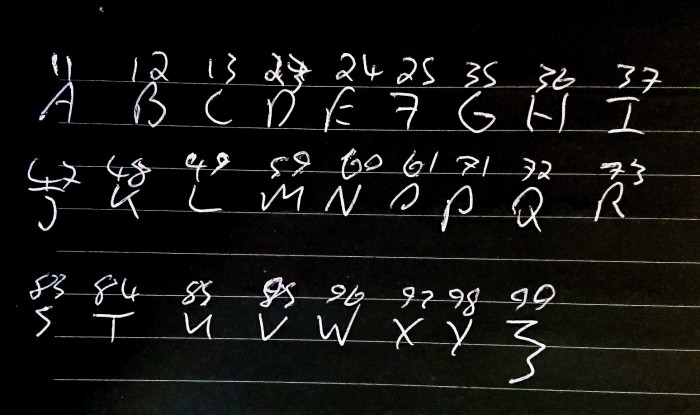 11 12 13 23 24 25 35 36 37
A B C D E F G H I
47 48 49 59 60 61 71 72 73
J K L M N O P Q R
83 84 85 95 96 97 98 99
S T U V W X Y Z